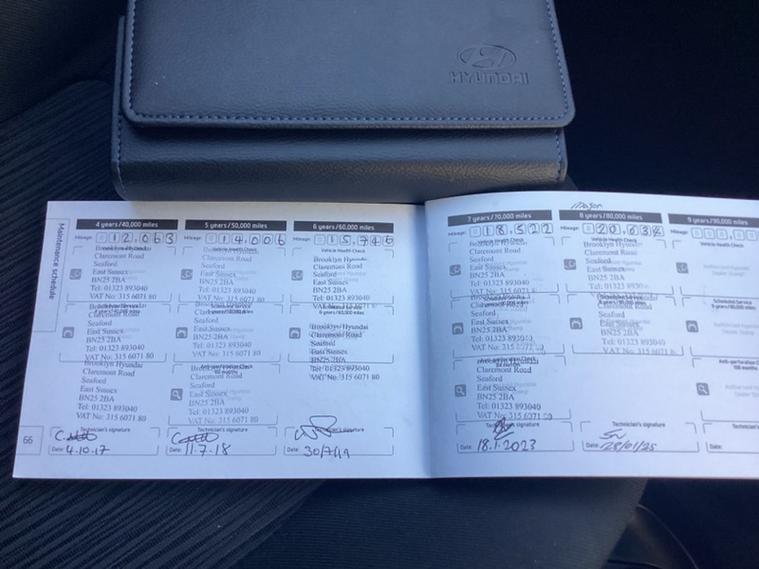 HYUNDAI
Maintenance schedule
4 years/40,000 miles
Mileage 12,063
Vehicle Health Check
Claremont Road
Seaford
East Sussex
BN25 2BA
Tel: 01323 893040
VAT No: 315 6071 80
Claremont Road
Seaford
East Sussex
BN25 2BA
Tel: 01323 893040
VAT No: 315 6071 80
Brooklyn Hyundai
Claremont Road
Seaford
East Sussex
BN25 2BA
Tel: 01323 893040
VAT No: 315 6071 80
Technician's signature
Date: 4.10.17
66
5 years/50,000 miles
Mileage 14,006
Vehicle Health Check
Claremont Road
Seaford
East Sussex
BN25 2BA
Tel: 01323 893040
VAT No: 315 6071 80
Claremont Road
Seaford
East Sussex
BN25 2BA
Tel: 01323 893040
VAT No: 315 6071 80
Claremont Road
Seaford
East Sussex
BN25 2BA
Tel: 01323 893040
VAT No: 315 6071 80
Technician's signature
Date: 11.7.18
6 years/60,000 miles
Mileage 15,746
Vehicle Health Check
Brooklyn Hyundai
Claremont Road
Seaford
East Sussex
BN25 2BA
Tel: 01323 893040
VAT No: 315 6071 80
Brooklyn Hyundai
Claremont Road
Seaford
East Sussex
BN25 2BA
Tel: 01323 893040
VAT No: 315 6071 80
Technician's signature
Date: 30/7/19
7 years/70,000 miles
Mileage 18,522
Claremont Road
Seaford
East Sussex
BN25 2BA
Tel: 01323 893040
VAT No: 315 6071 80
Claremont Road
Seaford
East Sussex
BN25 2BA
Tel: 01323 893040
VAT No: 315 6071
Claremont Road
Seaford
East Sussex
BN25 2BA
Tel: 01323 893040
VAT No: 315 6071
Technician's signature
Date: 18.1.2023
Major
8 years/80,000 miles
Mileage
Vehicle Health Check
Claremont Road
Seaford
East Sussex
BN25 2BA
VAT No: 315 6071 80
Seaford
East Sussex
BN25 2BA
Tel: 01323 893040
VAT No: 315 6071 80
Technician's signature
Date: 28/01/25
9 years/90,000 miles
Mileage
Vehicle Health Check
Scheduled Service
9 years/90,000 miles
Anti-perforation
108 months
Date: